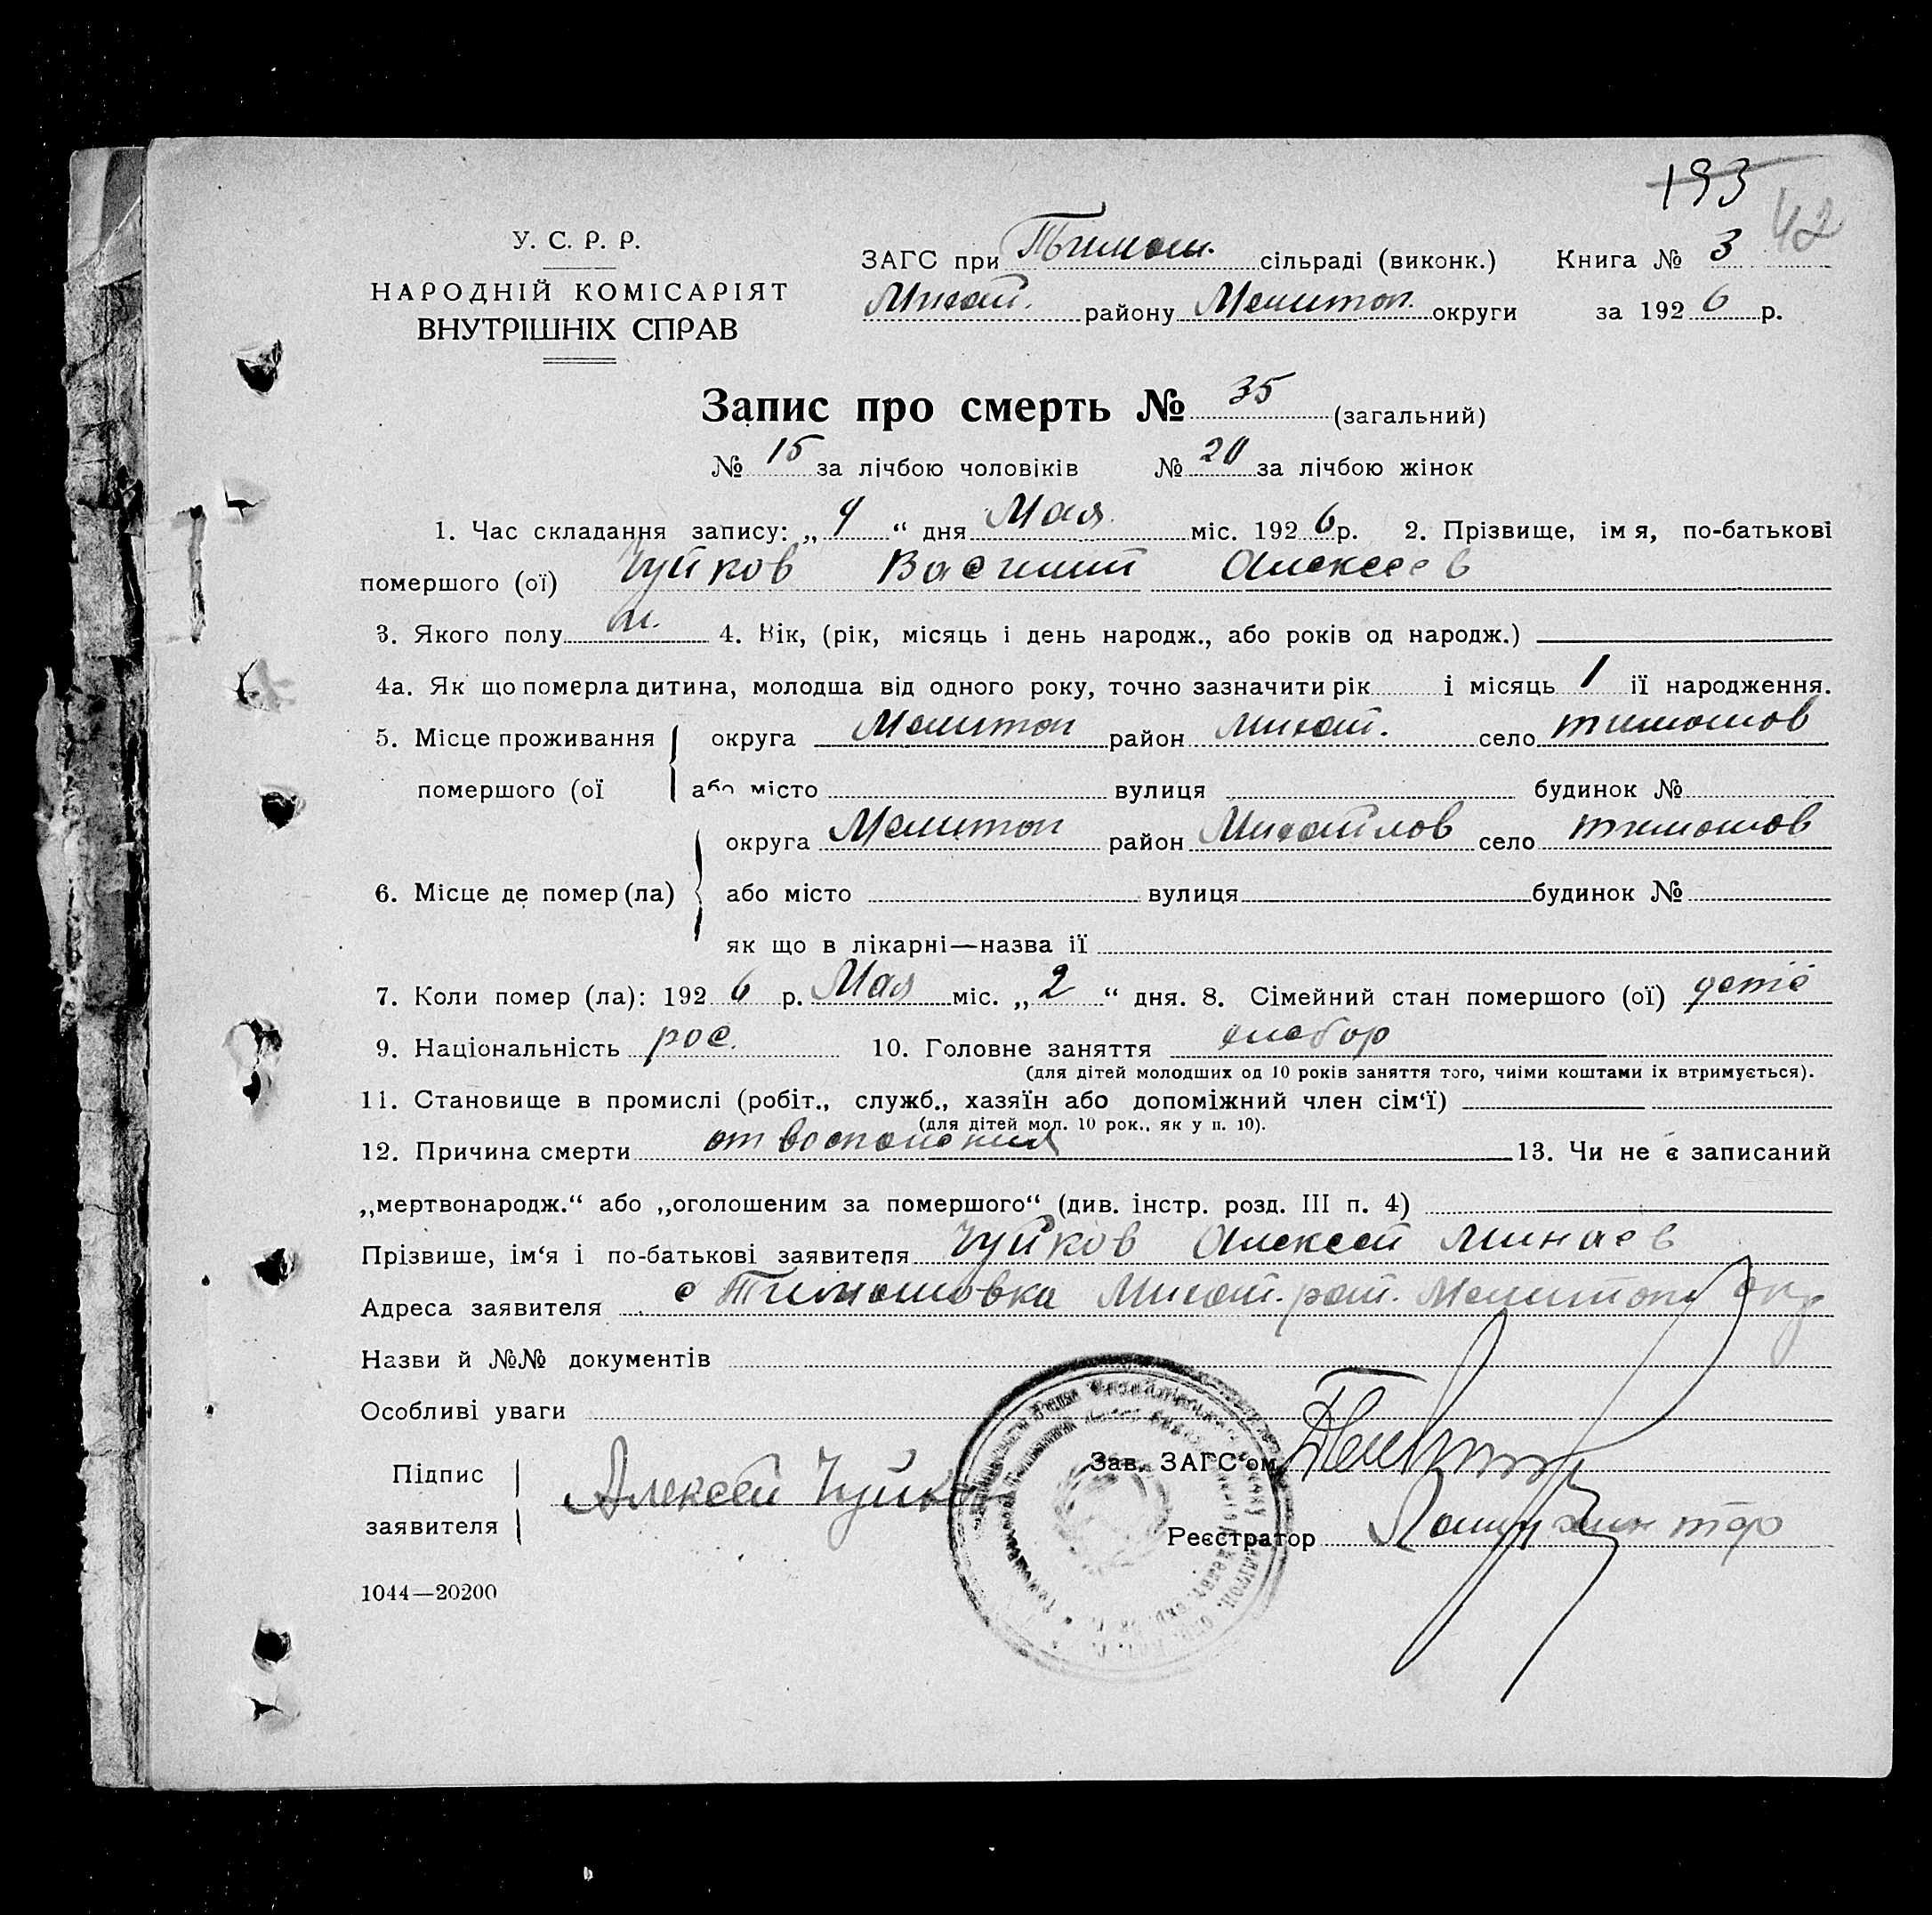 193
42
У. С. Р. Р.
НАРОДНІЙ КОМІСАРІЯТ
ВНУТРІШНІХ СПРАВ
ЗАГС при Тимош. сільраді (виконк.) Книга № 3
Михай. району Мелитоп. округи за 1926 р.
Запис про смерть № 35 (загальний)
№ 15 за лічбою чоловіків № 20 за лічбою жінок
1. Час складання запису: „ 4 “ дня Мая міс. 1926 р. 2. Прізвище, ім я, по-батькові
помершого (ої) Чуйков Василий Алексеев
3. Якого полу м. 4. Вік, (рік, місяць і день народж., або років од народж.)
4а. Як що померла дитина, молодша від одного року, точно зазначити рік і місяць 1 її народження.
5. Місце проживання округа Мелитоп район Михай. село тимошов
помершого (ої або місто вулиця будинок №
округа Мелитоп район Михайлов село тимошов
6. Місце де помер (ла) або місто вулиця будинок №
як що в лікарні—назва її
7. Коли помер (ла): 1926 р. Мая міс. „ 2 “ дня. 8. Сімейний стан помершого (ої)
9. Національність рос. 10. Головне заняття хлебор
(для дітей молодших од 10 років заняття того, чиїми коштами їх втримується).
11. Становище в промислі (робіт., служб., хазяїн або допоміжний член сім‘ї)
(для дітей мол. 10 рок., як у п. 10).
12. Причина смерти от воспаления 13. Чи не є записаний
„мертвонародж.“ або „оголошеним за помершого“ (див. інстр. розд. III п. 4)
Прізвише, ім‘я і по-батькові заявителя Чуйков Алексей Минаев
Адреса заявителя с Тимошовка Михай. рай. Мелитоп окр
Назви й №№ документів
Особливі уваги
Підпис
заявителя Алексей Чуйков
Зав. ЗАГС‘ом
Реєстратор
1044—20200